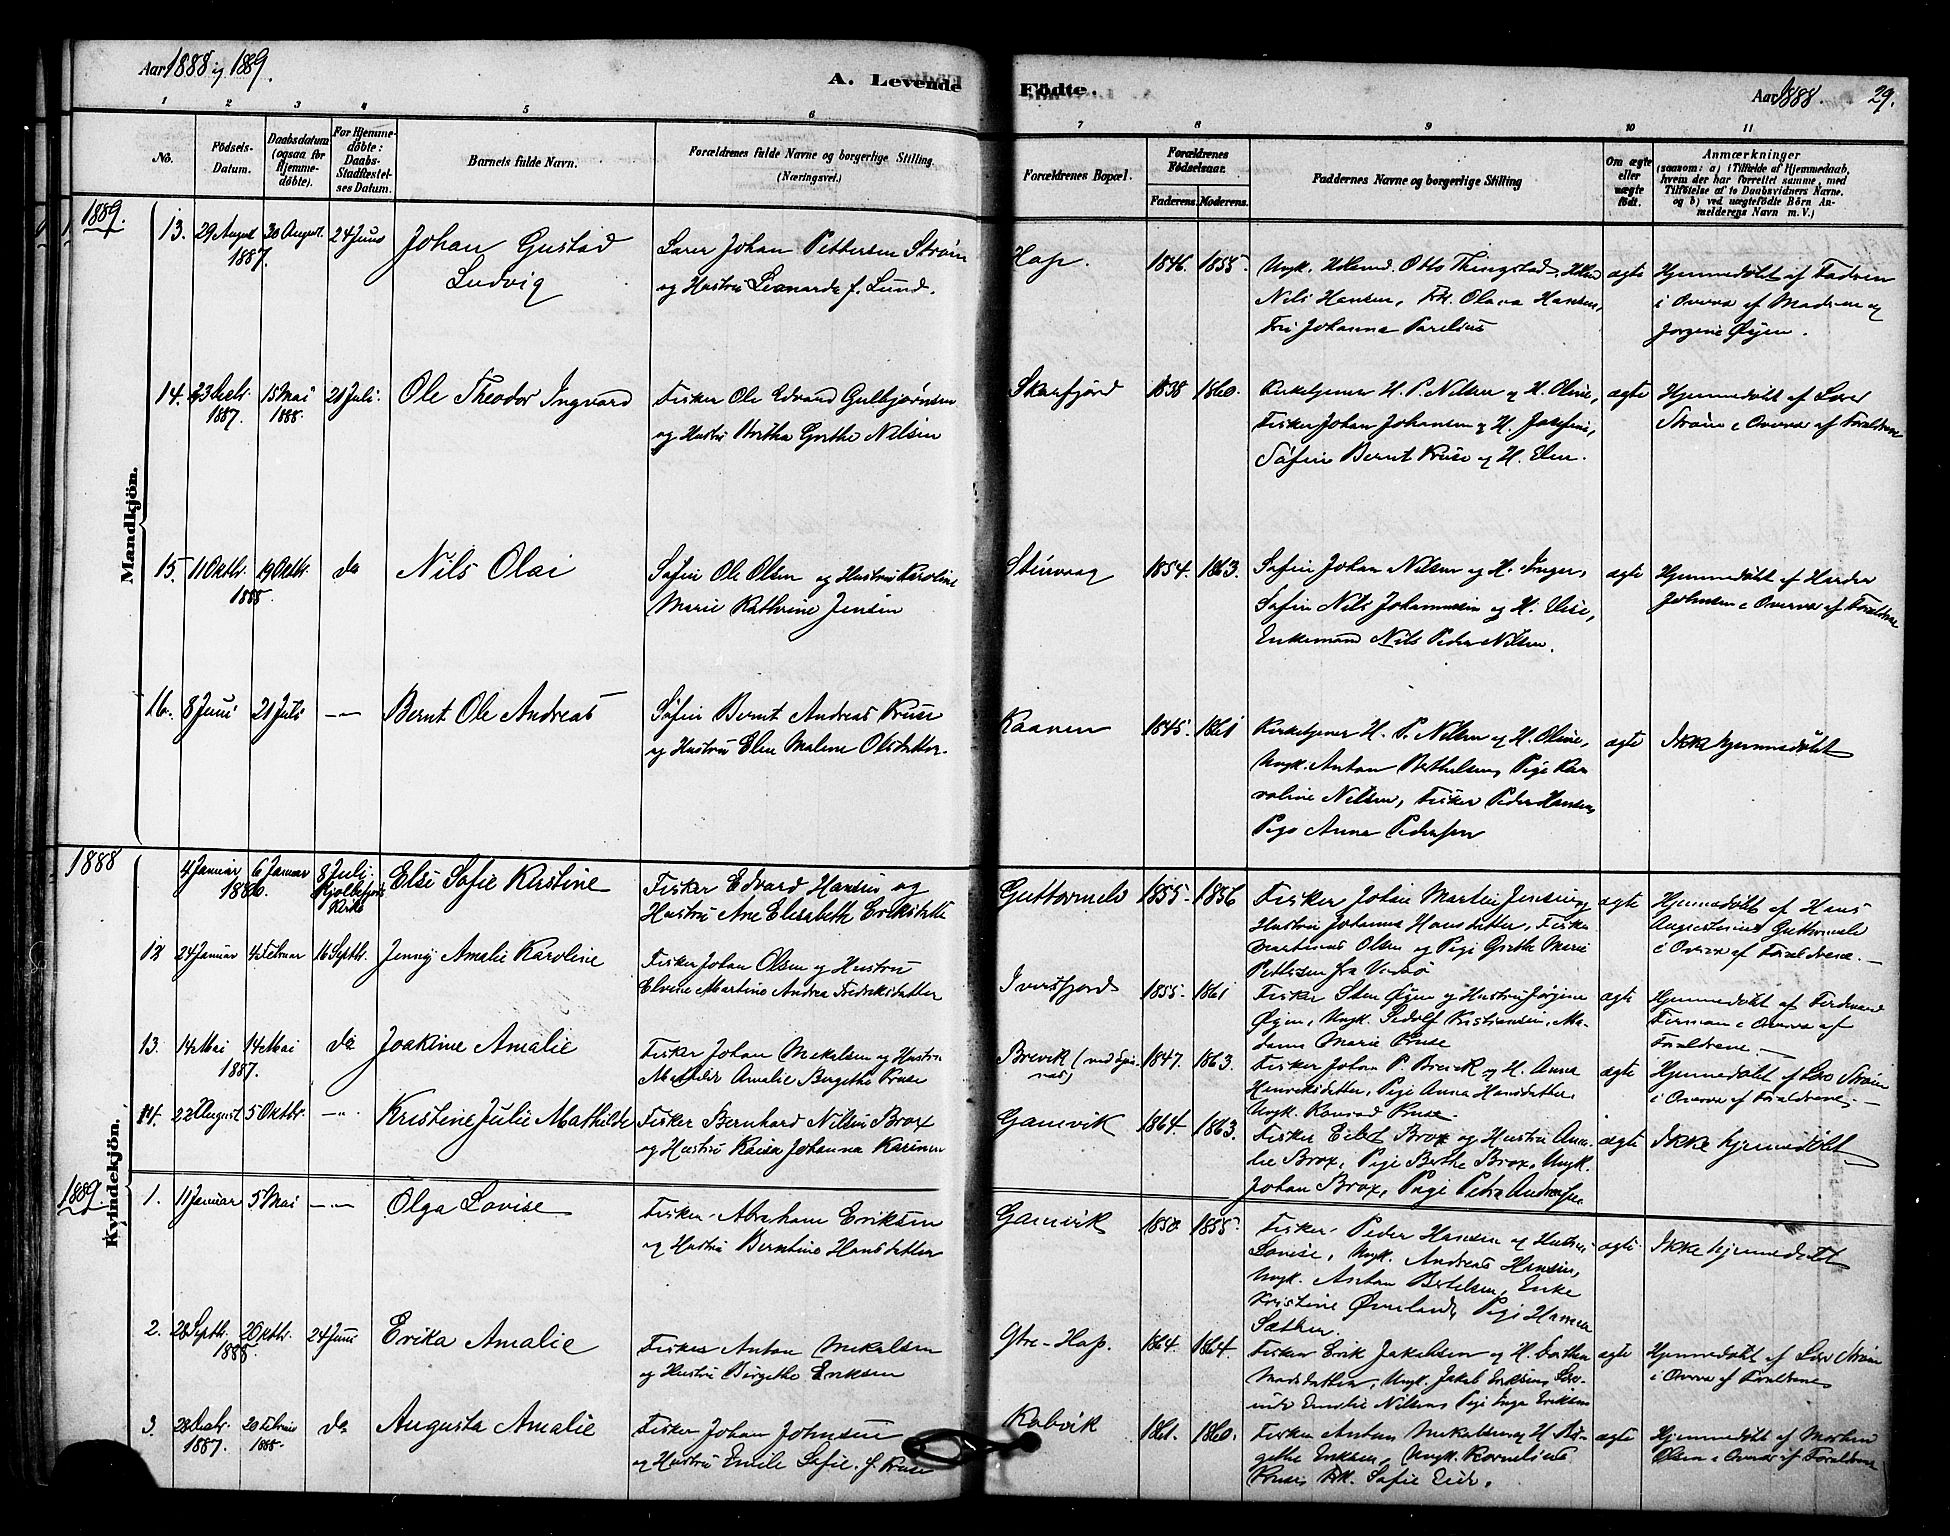 Aar 1888 og 1889.
A. Levende Födte.
Aar 1888. 29.
1 2 3 4 5 6 7 8 9 10 11
No.
Födsels-Datum.
Daabsdatum (ogsaa for Hjemmedöbte).
For Hjemmedöbte: Daabs-Stadfæstelses Datum.
Barnets fulde Navn.
Forældrenes fulde Navne og borgerlige Stilling. (Næringsvei.)
Forældrenes Bopæl.
Forældrenes Födselsaar.
Faderens. Moderens.
Faddernes Navne og borgerlige Stilling
Om ægte eller uægte födt.
Anmærkninger
(saasom: a) i Tilfælde af Hjemmedaab,
hvem der har forrettet samme, med
Tilföielse af to Daabsvidners Navne.
og b) ved uægtefödte Börn An-
melderens Navn m. V.)
1889.
Mandkjön.
13. 29 August 1887. 30 August. 24 Juni
Johan Gustad
Ludvig
Lærer Johan Pettersen Strøm
og Hustru Leonarda f. Lund.
Hop. 1846. 1855.
Ungk. Otto Thingstad,
Nils Hansen, Frk. Olava Hansen,
Fru Johanna Parelius
ægte
Hjemmedøbt af Fadren
i Overvær af Madsen og
Jørgine Øyen.
14. 23 Decbr. 1887. 15 Mai 1888. 21 Juli.
Ole Theodor Ingvard
Fisker Ole Edvard Gulbjørnsen
og Hustru Berthe Grethe Nilsen
Skarfjord 1838 1860.
Kirketjener H. P. Nilsen og H. Oline,
Fisker Johan Johansen og H. Josefine,
Søfin Bernt Kruse og H. Elen.
ægte
Hjemmedøbt af Lærer
Strøm i Overvær af Forældrene
15. 11 Oktbr. 1888. 19 Oktbr. do
Nils Olai
Søfin Ole Olsen og Hustru Karoline
Marie Kathrine Jensen
Steinvaag 1854. 1863.
Søfin Johan Nilsen og H. Inger,
Søfin Nils Johannesen og H. Elise,
Enkemand Nils Peder Nilsen.
ægte
Hjemmedøbt af
Johnsen i Overvær af Forældrene
16. 8 Juni 21 Juli —"—
Bernt Ole Andreas
Søfin Bernt Andreas Kruse
og Hustru Elen Malene Olsdatter.
Kaaven 1845. 1861
Kirketjener H. P. Nilsen og H. Oline,
Ungk. Anton Berthelsen, Pige Ka-
roline Nilsen, Fisker Peder Hansen,
Pige Anna Pedersen
ægte
Ikke hjemmedøbt
1888
Kvindekjön.
4 Januar 6 Januar 8 Juli
Kjøllefjord Kirke
Else Sofie Kirstine
Fisker Edvard Hansen og
Hustru Ane Elisabeth Eriksdatter
Guttormelv 1855. 1856
Fisker Johan Martin Jensen og
Hustru Johanna Hansdatter, Fisker
Martinus Olsen og Pige Grethe Marie
Pettersen fra Vardø
ægte
Hjemmedøbt af Hans
Augustinius Guttormelv
i Overvær af Forældrene.
12 24 Januar 4 Februar 16 Septbr.
Jenny Amalie Karoline
Fisker Johan Olsen og Hustru
Elvine Martine Andrea Fredriksdatter
Ivarsfjord 1855. 1861
Fisker Sten Øyen og Hustru Jørgine
Øyen, Ungk. Kristiansen, Ma-
Marie Kruse
ægte
Hjemmedøbt af Ferdinand
i Overvær af
Forældrene.
13. 14 Mai 1887. 14 Mai do
Joakine Amalie
Fisker Johan Mikalsen og Hustru
Mathilde Amalie Bergethe Kruse
Brevik 1847. 1863.
Fisker Johan P. Brevik og H. Anna
Henriksdatter, Pige Anna Hansdatter,
Ungk. Konrad Kruse.
ægte
Hjemmedøbt af Strøm
i Overvær af Forældrene.
14. 22 August 5 Oktbr. —"—
Kristine Julie Mathilde
Fisker Bernhard Nilsen Brox
og Hustru Kaisa Johanna Karinen
Gamvik 1864. 1863.
Fisker Eilet Brox og Hustru Ama-
lie Brox, Pige Berthe Brox, Ungk.
Johan Brox, Pige Petra Andersen
ægte
Ikke hjemmedøbt
1889
1. 11 Januar 5 Mai —"—
Olga Lovise
Fisker Abraham Eriksen
og Hustru Berntine Hansdatter
Gamvik 1850. 1855.
Fisker Peder Hansen og Hustru
Lovise, Ungk. Andreas Hansen,
Ungk. Anton Bertelsen, Enke
Kristine Øverland, Pige Hanna
Sæther.
ægte
Ikke hjemmedøbt
2. 28 Septbr. 1888. 20 Oktbr. 24 Juni
Erika Amalie
Fisker Anton Mikalsen
og Hustru Birgethe Eriksen
Ytre-Hop. 1864. 1864.
Fisker Erik Jakobsen og H. Dorthea
Madsdatter, Ungk. Jakob Eriksen,
Emilie Nilsen, Pige Inga Eriksen
ægte
Hjemmedøbt af Lærer Strøm
i Overvær af Forældrene
3. 28 Decbr. 1887. 20 Februar 1888. do
Augusta Amalie
Fisker Johan Johnsen
og Hustru Emilie Sofie f. Kruse
Kalvik 1861. 1860.
Fisker Anton Mikalsen og H. Bir-
gethe Eriksen, Ungk. Kornelius
Kruse, Frk. Sofie Eide.
ægte
Hjemmedøbt af Morten
Olsen i Overvær af Forældrene